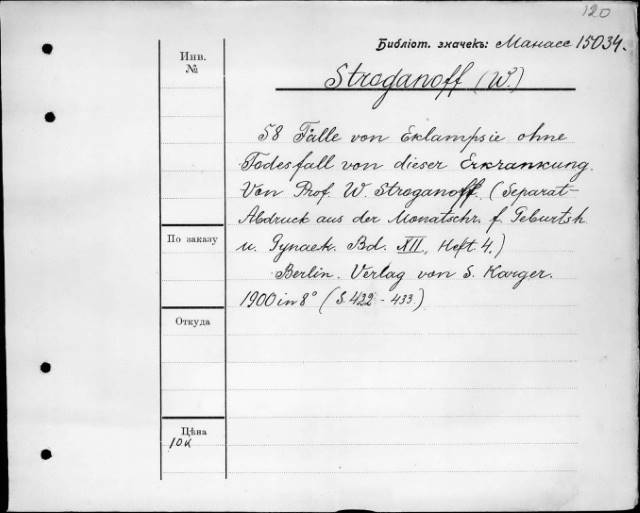 120
Библіот. значекъ: Манасс 15034.
Инв.
№
Stroganoff (W.)
58 Fälle von Eklampsie ohne
Todesfall von dieser Erkrankung.
Von Prof. W. Stroganoff. (Separat-
Abdruck aus der Monatschr. f. Geburtsh
u. Gynaek. Bd. XII, Heft 4.)
По заказу
Berlin. Verlag von S. Karger.
1900 in 8° (S. 422 - 433.)
Откуда
Цѣна
10к